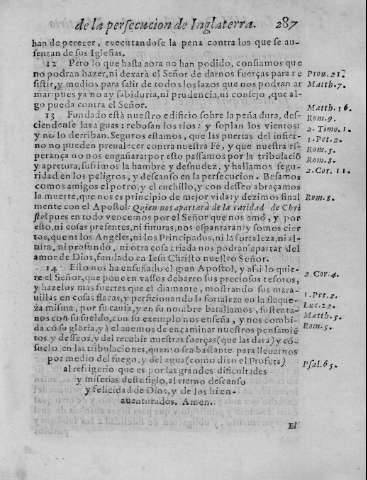 de la persecucion de Inglaterra. 287
han de perecer, executandose la pena contra los que se au-
sentan de sus Iglesias.
12 Pero lo que hasta aora no han podido, confiamos que
no podran hazer, ni dexarà el Señor de darnos fuerças para re Prou. 21.
sistir, y medios para salir de todos los lazos que nos podran ar Matth. 7.
mar: pues no ay sabiduria, ni prudencia, ni consejo, que al-
go pueda contra el Señor. Matth. 16.
13 Fundado està nuestro edificio sobre la peña dura, des- Rom. 9.
ciendense las aguas: rebosan los rios: y soplan los vientos:
y no lo derriban. Seguros estamos, que las puertas del infier- 2. Timo. 1.
no no pueden preualecer contra nuestra Fè, y que nuestra es- 1. Pet. 2.
perança no nos engañarà: por esto passamos por la tribulaciõ Rom. 5.
y apretura, sufrimos la hambre y desnudez, y hallamos segu- Rom. 8.
ridad en los peligros, y descanso en la persecucion. Besamos 2. Cor. 11.
como amigos el potro, y el cuchillo, y con desseo abraçamos
la muerte, que nos es principio de mejor vida: y dezimos final Rom. 8.
mente con el Apostol: Quien nos apartarà de la caridad de Chri
sto? pues en todo vencemos por el Señor que nos amò, y por
esso, ni cosas presentes, ni futuras, nos espantaran: y somos cier
tos, que ni los Angeles, ni los Principados, ni la fortaleza, ni al-
tura, ni profundo, ni otra cosa criada nos podra apartar del
amor de Dios, fundado en Iesu Christo nuestro Señor.
14 Esto nos ha enseñado el gran Apostol, y assi lo quie-
re el Señor, que pone en vasos de barro sus preciosos tesoros, 2. Cor. 4.
y hazelos mas fuertes que el diamante, mostrando sus mara-
uillas en cosas flacas, y perficionando la fortaleza en la flaque- 1. Pet. 2.
za misma, por su causa, y en su nombre batallamos, sustenta- Luc. 22.
nos con su sueldo, con su exemplo nos enseña, y nos combi- Matth. 5.
da cõ su gloria, y à el auemos de encaminar nuestros pensamiẽ Rom. 5.
tos y desseos, y del recebir nuestras fuerças (que las dara) y cõ-
suelo en las tribulaciones, quanto sea bastante para lleuarnos
por medio del fuego, y del agua (como dixo el Profeta) Psal. 65.
al refrigerio que es por las grandes dificultades
y miserias deste siglo, al eterno descanso
y felicidad de Dios, y de los bien-
auenturados. Amen.
El